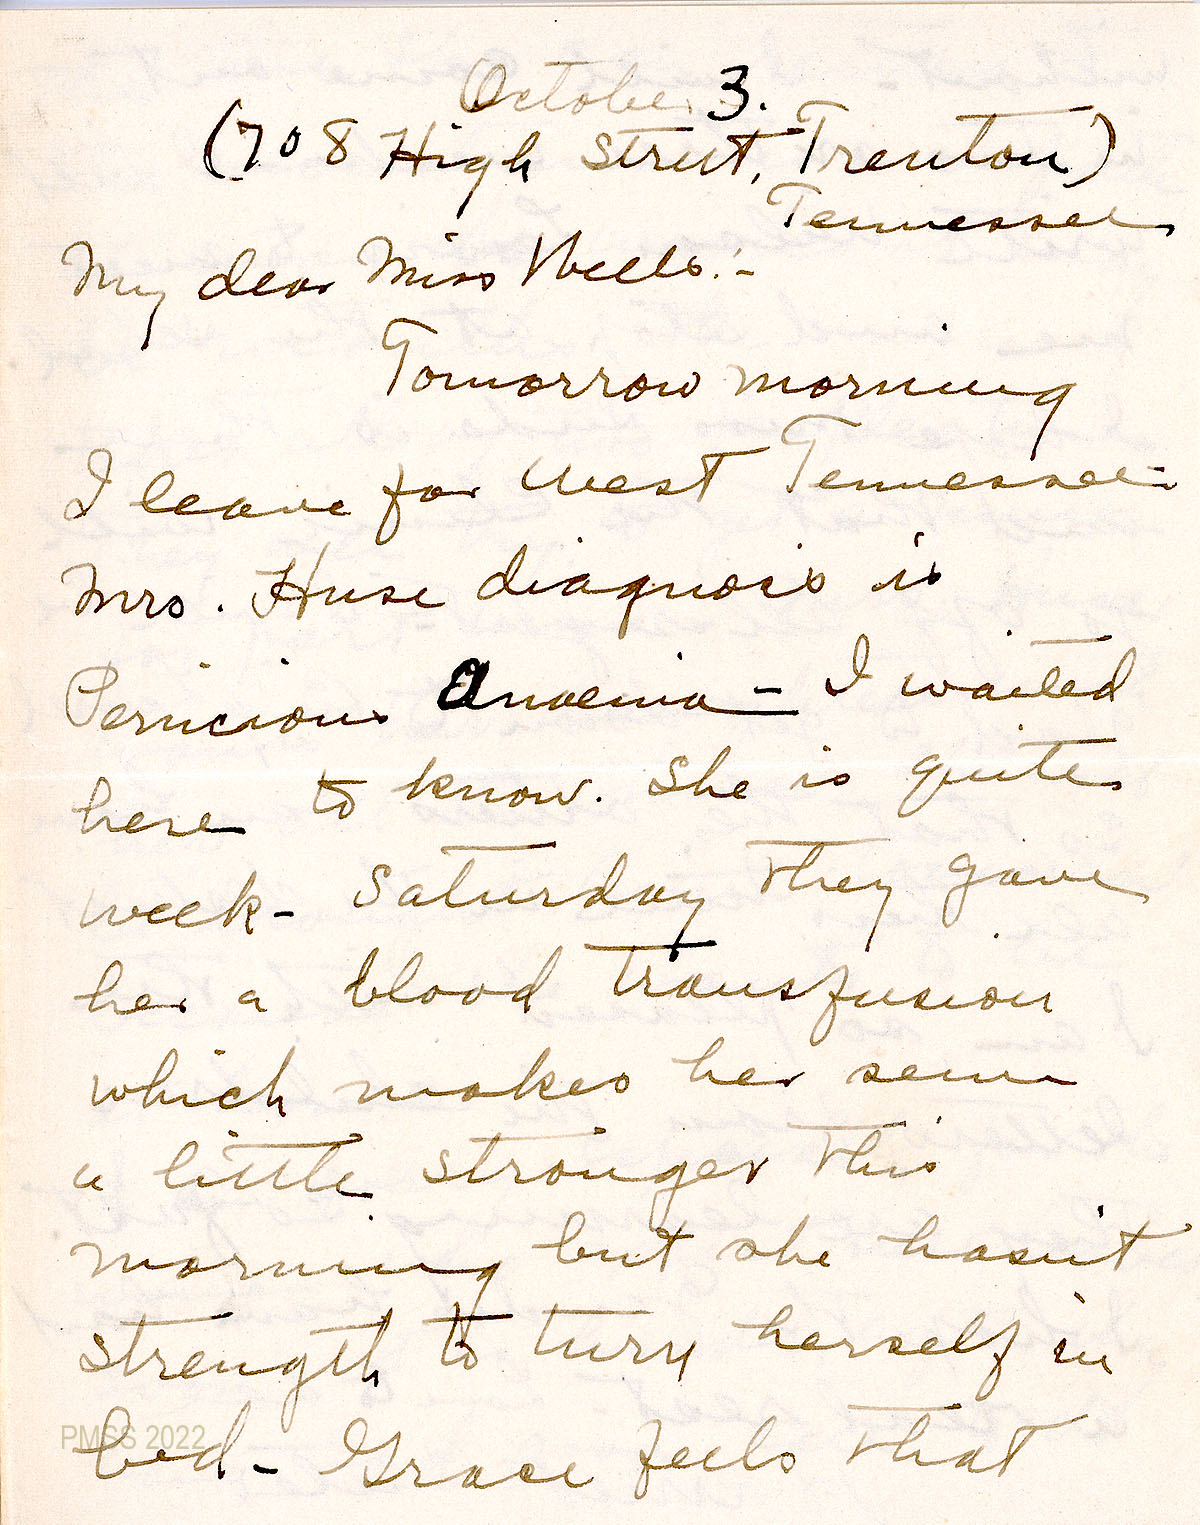 October 3.
(708 High Street, Trenton)
Tennessee
My dear Miss Wells:-
Tomorrow morning
I leave for West Tennessee-
Mrs. Huse diagnosis is
Pernicious Anaemia - I waited
here to know. She is quite
week - Saturday they gave
her a blood transfusion
which makes her seem
a little stronger this
morning but she hasn't
strength to turn herself in
bed - Grace feels that
PMSS 2022